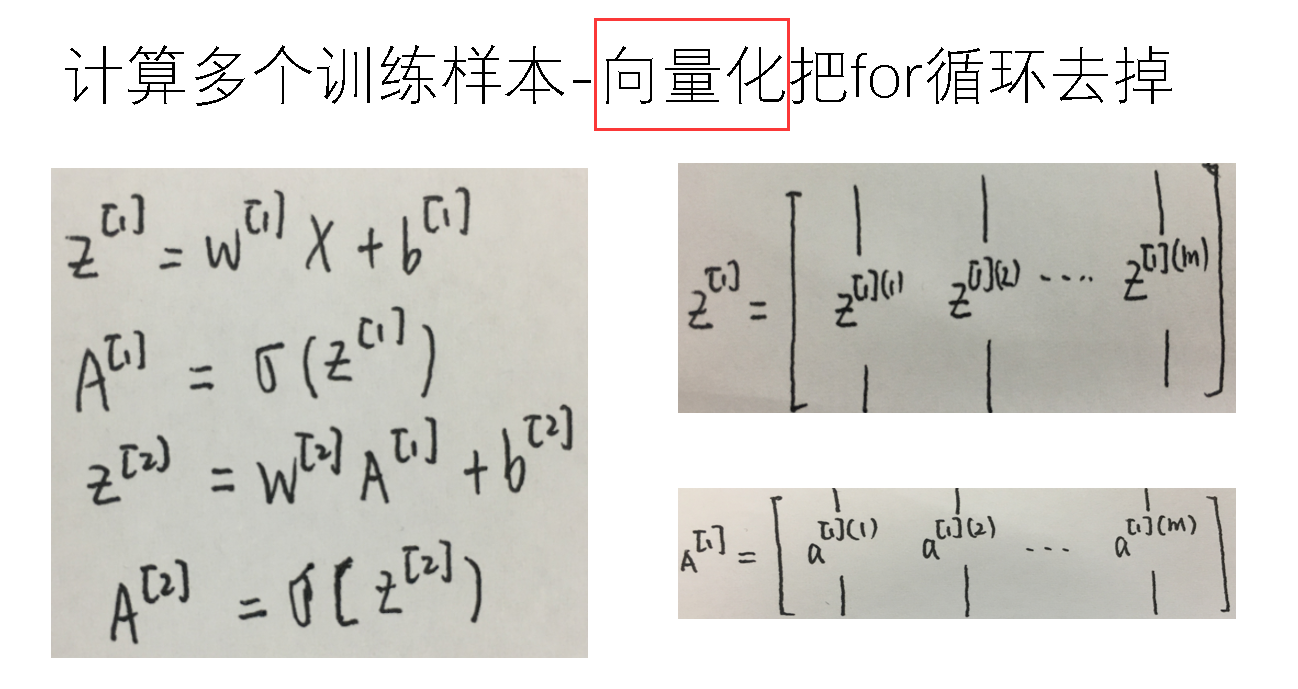 计算多个训练样本-向量化把for循环去掉
z^[1] = W^[1] X + b^[1]
A^[1] = σ(z^[1])
z^[2] = W^[2] A^[1] + b^[2]
A^[2] = σ(z^[2])
z^[1] = [ z^[1](1) z^[1](2) .... z^[1](m) ]
A^[1] = [ a^[1](1) a^[1](2) ... a^[1](m) ]